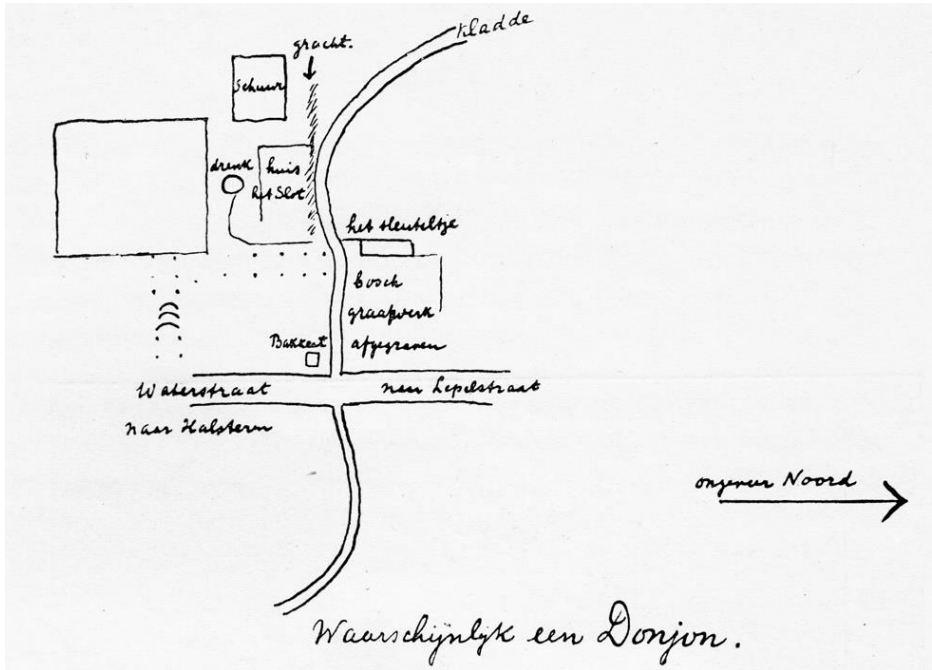 Kladde
gracht.
Schuur
drenk
huis
het Slot
het sleuteltje
bosch
graafwerk
afgegraven
Bakkeet
Waterstraat
naar Lepelstraat
naar Halsteren
ongeveer Noord
Waarschijnlyk een Donjon.